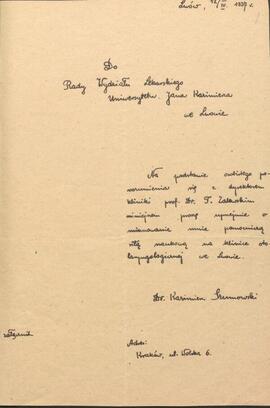 Lwów, 1937 r.
Do
Rady Wydziału Lekarskiego
Uniwersytetu Jana Kazimierza
we Lwowie
Na podstawie osobistego po-
rozumienia się z dyrektorem
kliniki prof. Dr. T. Zalewskim
niniejszem proszę uprzejmie o
mianowanie mnie pomocniczą
siłą naukową na klinice oto-
laryngologicznej we Lwowie.
Dr. Kazimierz
Adres:
Kraków, ul. Wolska 6.